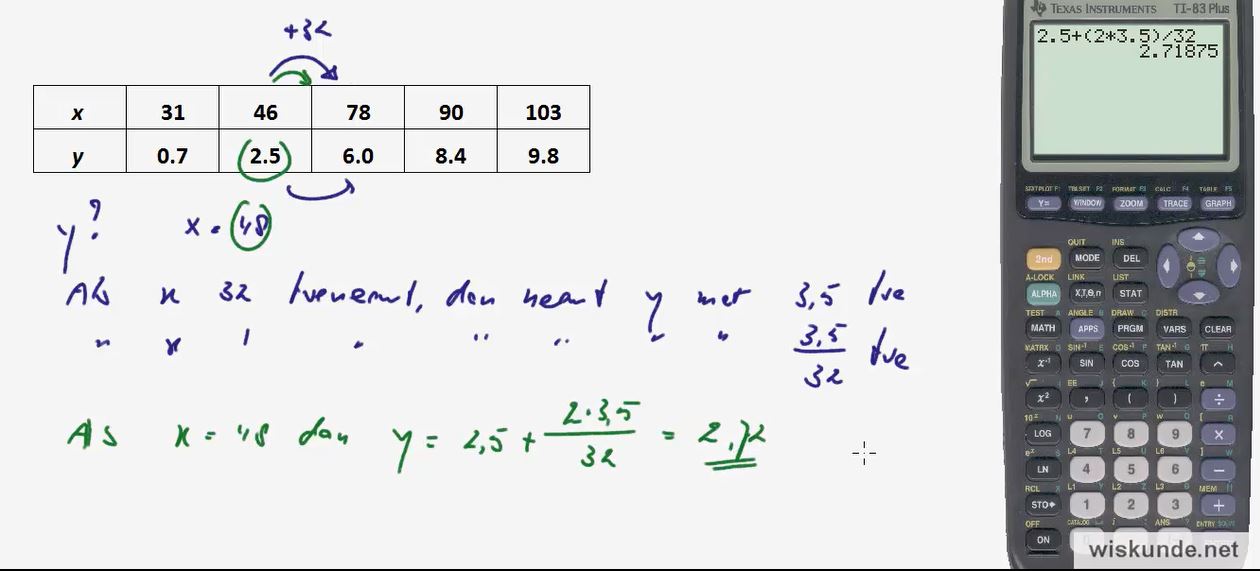 +32
x 31 46 78 90 103
y 0.7 2.5 6.0 8.4 9.8
y? x = 48
Als x 32 toeneemt, dan neemt y met 3,5 toe
" x 1 " " " " " 3,5/32 toe
Als x = 48 dan y = 2,5 + 2·3,5/32 = 2,72
TEXAS INSTRUMENTS TI-83 Plus
2.5+(2*3.5)/32
2.71875
STATPLOT F1 TBLSET F2 FORMAT F3 CALC F4 TABLE F5
Y= WINDOW ZOOM TRACE GRAPH
QUIT INS
2nd MODE DEL
A-LOCK LINK LIST
ALPHA X,T,θ,n STAT
TEST A ANGLE B DRAW C DISTR
MATH APPS PRGM VARS CLEAR
MATRX D SIN⁻¹ E COS⁻¹ F TAN⁻¹ G π H
x⁻¹ SIN COS TAN ^
√ I EE J { K } L e M
x² , ( ) ÷
10ˣ N u O v P w Q [ R
LOG 7 8 9 ×
eˣ S L4 T L5 U L6 V ] W
LN 4 5 6 −
RCL X L1 Y L2 Z L3 θ MEM "
STO▸ 1 2 3 +
OFF CATALOG ANS ? ENTRY SOLVE
ON
wiskunde.net